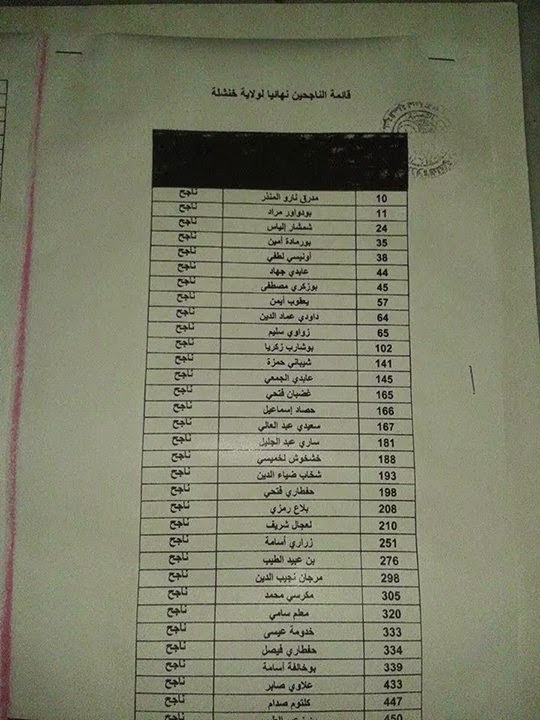 قائمة الناجحين نهائيا لولاية خنشلة
10 مدرق نارو المنذر ناجح
11 بودواور مراد ناجح
24 شمشار إلياس ناجح
35 بورمادة أمين ناجح
38 أونيسي لطفي ناجح
44 عابدي جهاد ناجح
45 بوزكري مصطفى ناجح
57 يعقوب أيمن ناجح
64 داودي عماد الدين ناجح
65 زواوي سليم ناجح
102 بوشارب زكريا ناجح
141 شيباني حمزة ناجح
145 عابدي الجمعي ناجح
165 غضبان فتحي ناجح
166 حصاد إسماعيل ناجح
167 سعيدي عبد العالي ناجح
181 ساري عبد الجليل ناجح
188 خشخوش لخميسي ناجح
193 شخاب ضياء الدين ناجح
198 حفطاري فتحي ناجح
208 بلاع رمزي ناجح
210 لعجال شريف ناجح
251 زراري أسامة ناجح
276 بن عبيد الطيب ناجح
298 مرجان نجيب الدين ناجح
305 مكرسي محمد ناجح
320 معلم سامي ناجح
333 خدومة عيسى ناجح
334 حفطاري فيصل ناجح
339 بوخالفة أسامة ناجح
433 علاوي صابر ناجح
447 كلثوم صدام ناجح
450 ناجح